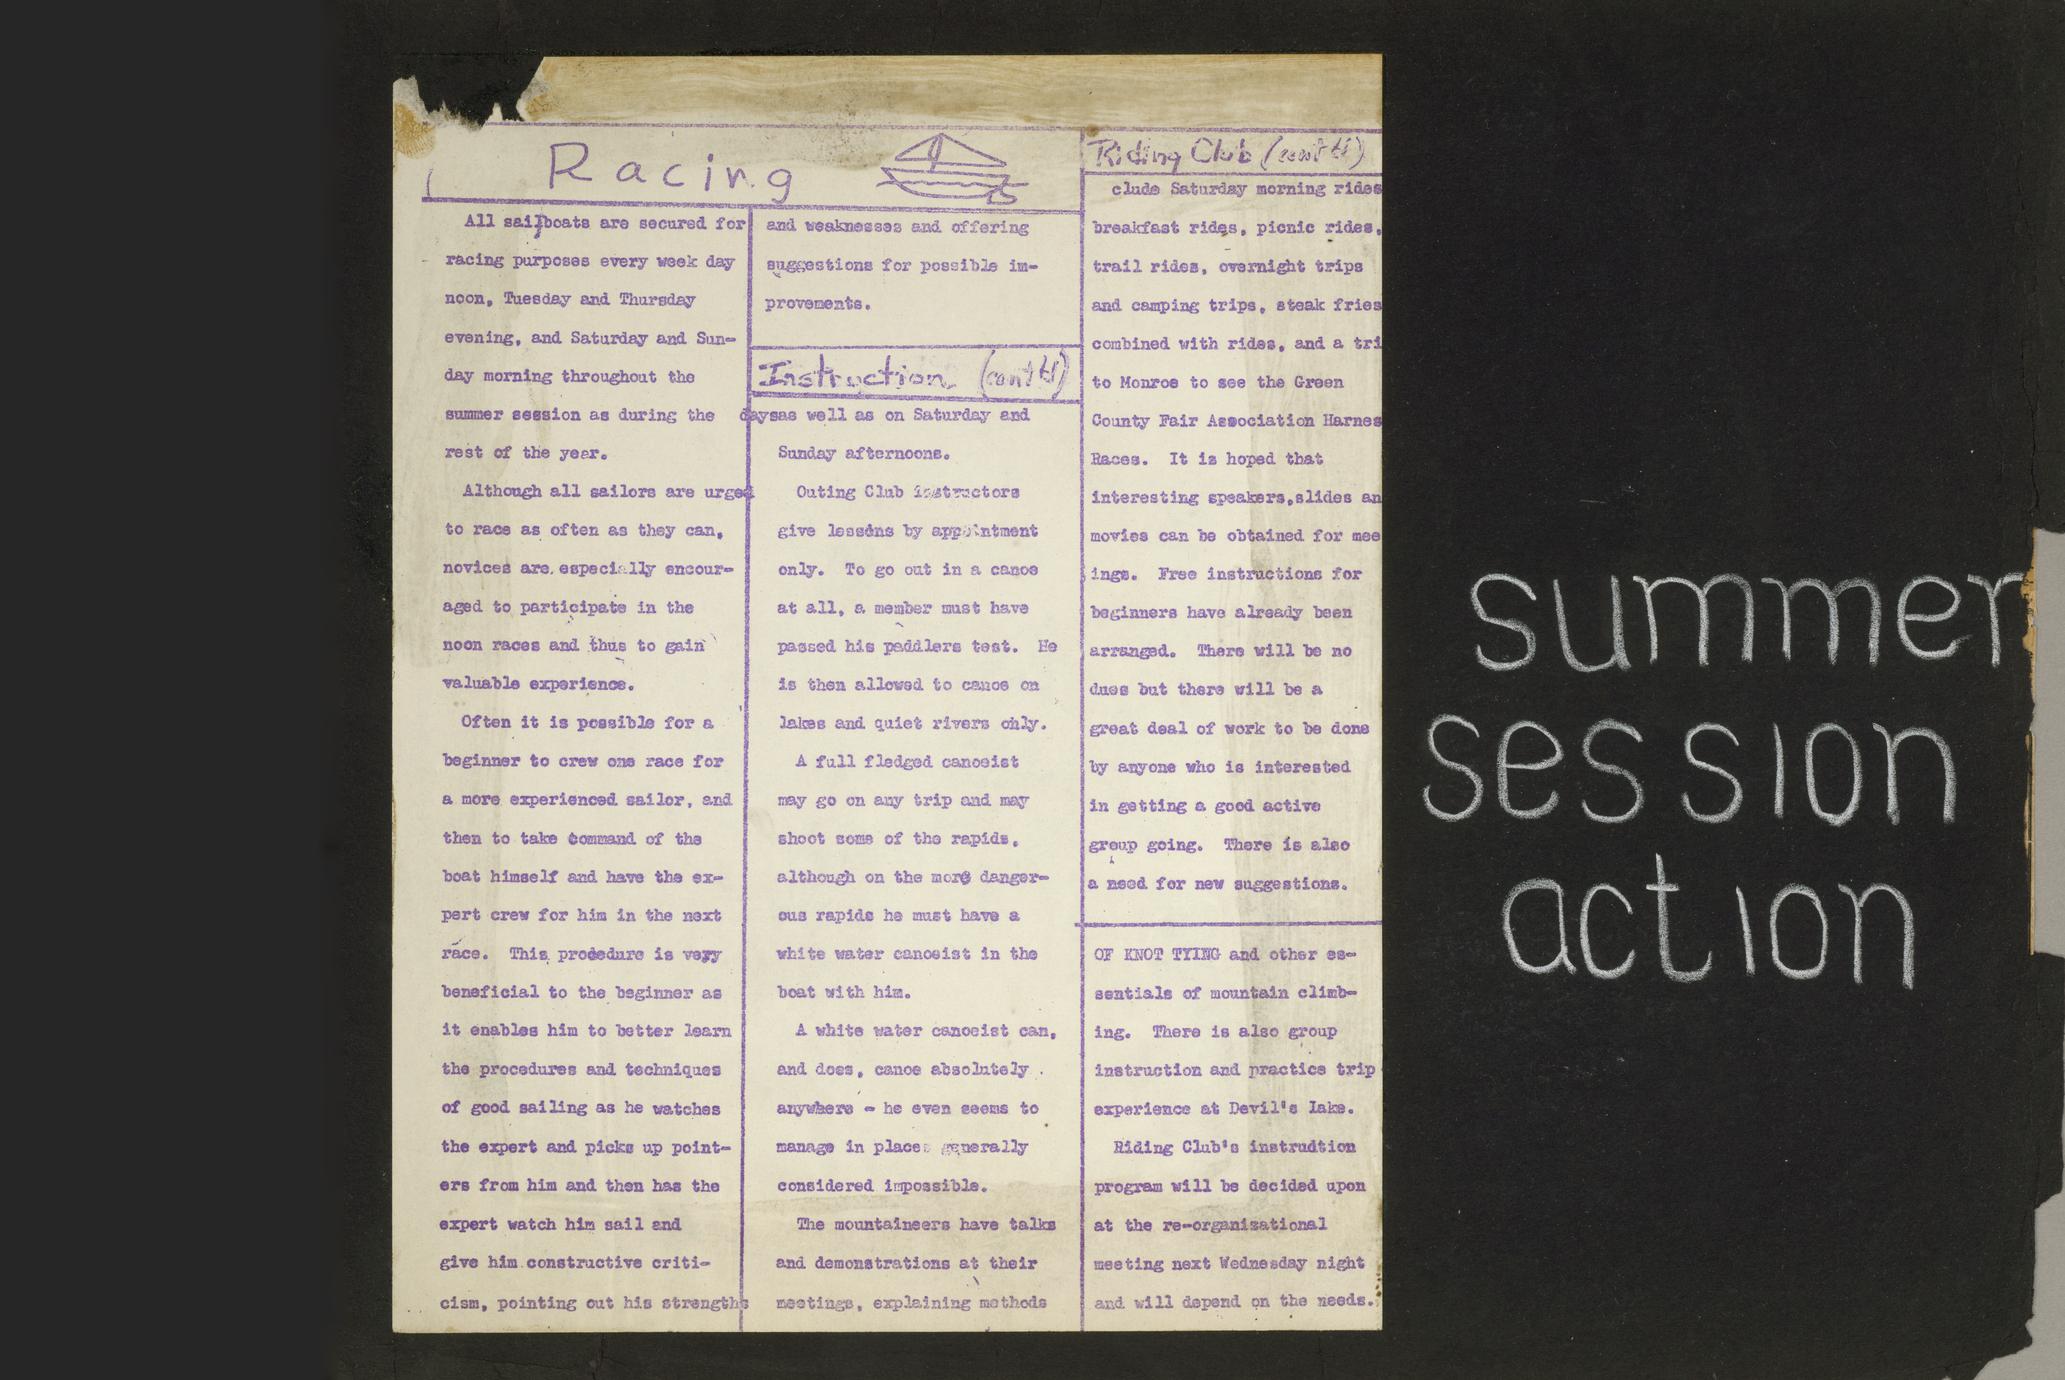 Racing
All sailboats are secured for
racing purposes every week day
noon, Tuesday and Thursday
evening, and Saturday and Sun-
day morning throughout the
summer session as during the
rest of the year.
Although all sailors are urged
to race as often as they can,
novices are especially encour-
aged to participate in the
noon races and thus to gain
valuable experience.
Often it is possible for a
beginner to crew one race for
a more experienced sailor, and
then to take command of the
boat himself and have the ex-
pert crew for him in the next
race. This procedure is very
beneficial to the beginner as
it enables him to better learn
the procedures and techniques
of good sailing as he watches
the expert and picks up point-
ers from him and then has the
expert watch him sail and
give him constructive criti-
cism, pointing out his strengths
and weaknesses and offering
suggestions for possible im-
provements.
Instruction (cont'd)
days as well as on Saturday and
Sunday afternoons.
Outing Club instructors
give lessons by appointment
only. To go out in a canoe
at all, a member must have
passed his paddlers test. He
is then allowed to canoe on
lakes and quiet rivers only.
A full fledged canoeist
may go on any trip and may
shoot some of the rapids,
although on the more danger-
ous rapids he must have a
white water canoeist in the
boat with him.
A white water canoeist can,
and does, canoe absolutely
anywhere - he even seems to
manage in places generally
considered impossible.
The mountaineers have talks
and demonstrations at their
meetings, explaining methods
Riding Club (cont'd)
clude Saturday morning rides
breakfast rides, picnic rides,
trail rides, overnight trips
and camping trips, steak fries
combined with rides, and a tri
to Monroe to see the Green
County Fair Association Harnes
Races. It is hoped that
interesting speakers, slides an
movies can be obtained for mee
ings. Free instructions for
beginners have already been
arranged. There will be no
dues but there will be a
great deal of work to be done
by anyone who is interested
in getting a good active
group going. There is also
a need for new suggestions.
OF KNOT TYING and other es-
sentials of mountain climb-
ing. There is also group
instruction and practice trip
experience at Devil's Lake.
Riding Club's instrudtion
program will be decided upon
at the re-organizational
meeting next Wednesday night
and will depend on the needs.
summer
session
action